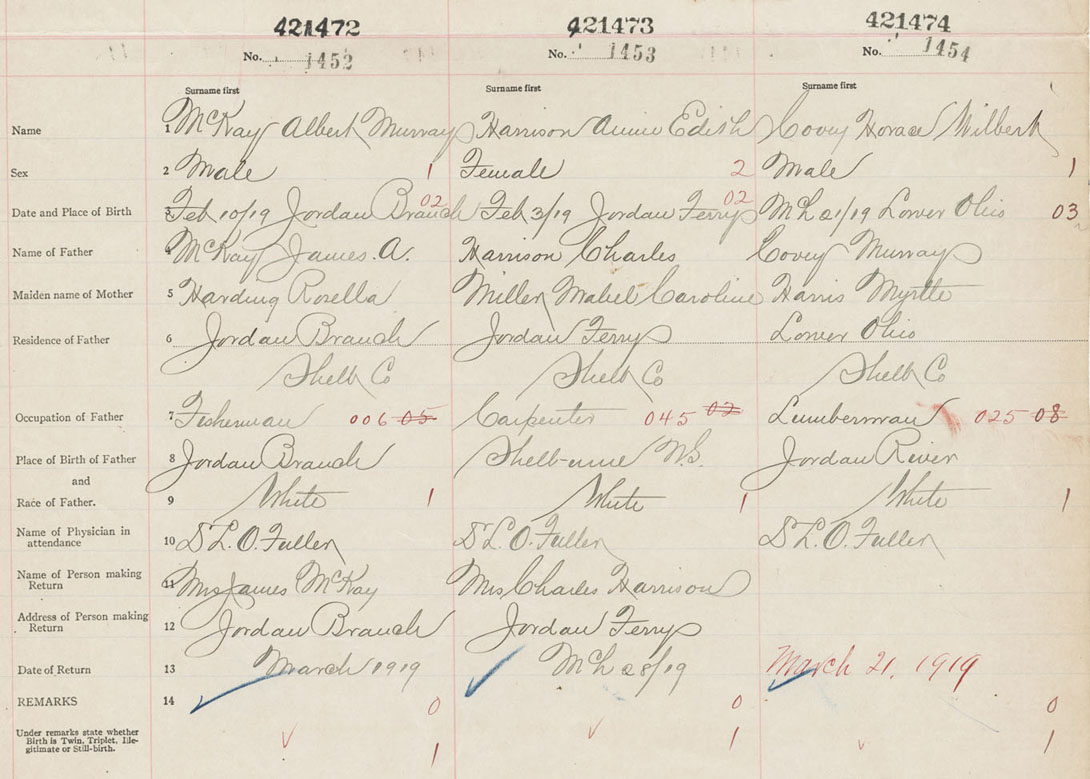 421472 421473 421474
No. 1452 No. 1453 No. 1454
Surname first Surname first Surname first
Name 1 McKay Albert Murray Harrison Annie Edith Covey Horace Wilbert
Sex 2 Male 1 Female 2 Male 1
Date and Place of Birth 3 Feb 10/19 Jordan Branch 02 Feb 3/19 Jordan Ferry 02 Mch 21/19 Lower Ohio 03
Name of Father 4 McKay James. A. Harrison Charles Covey Murray
Maiden name of Mother 5 Harding Rosella Miller Mabel Caroline Harris Myrtle
Residence of Father 6 Jordan Branch Jordan Ferry Lower Ohio
Shelb Co Shelb Co Shelb Co
Occupation of Father 7 Fisherman 006 05 Carpenter 045 02 Lumberman 025 08
Place of Birth of Father 8 Jordan Branch Shelburne N.S. Jordan River
and
Race of Father. 9 White 1 White 1 White 1
Name of Physician in
attendance 10 Dr L. O. Fuller Dr L. O. Fuller Dr L. O. Fuller
Name of Person making
Return 11 Mrs James McKay Mrs Charles Harrison
Address of Person making
Return 12 Jordan Branch Jordan Ferry
Date of Return 13 March 1919 Mch 28/19 March 21, 1919
REMARKS 14 0 0 0
Under remarks state whether
Birth is Twin, Triplet, Ille-
gitimate or Still-birth. 1 1 1